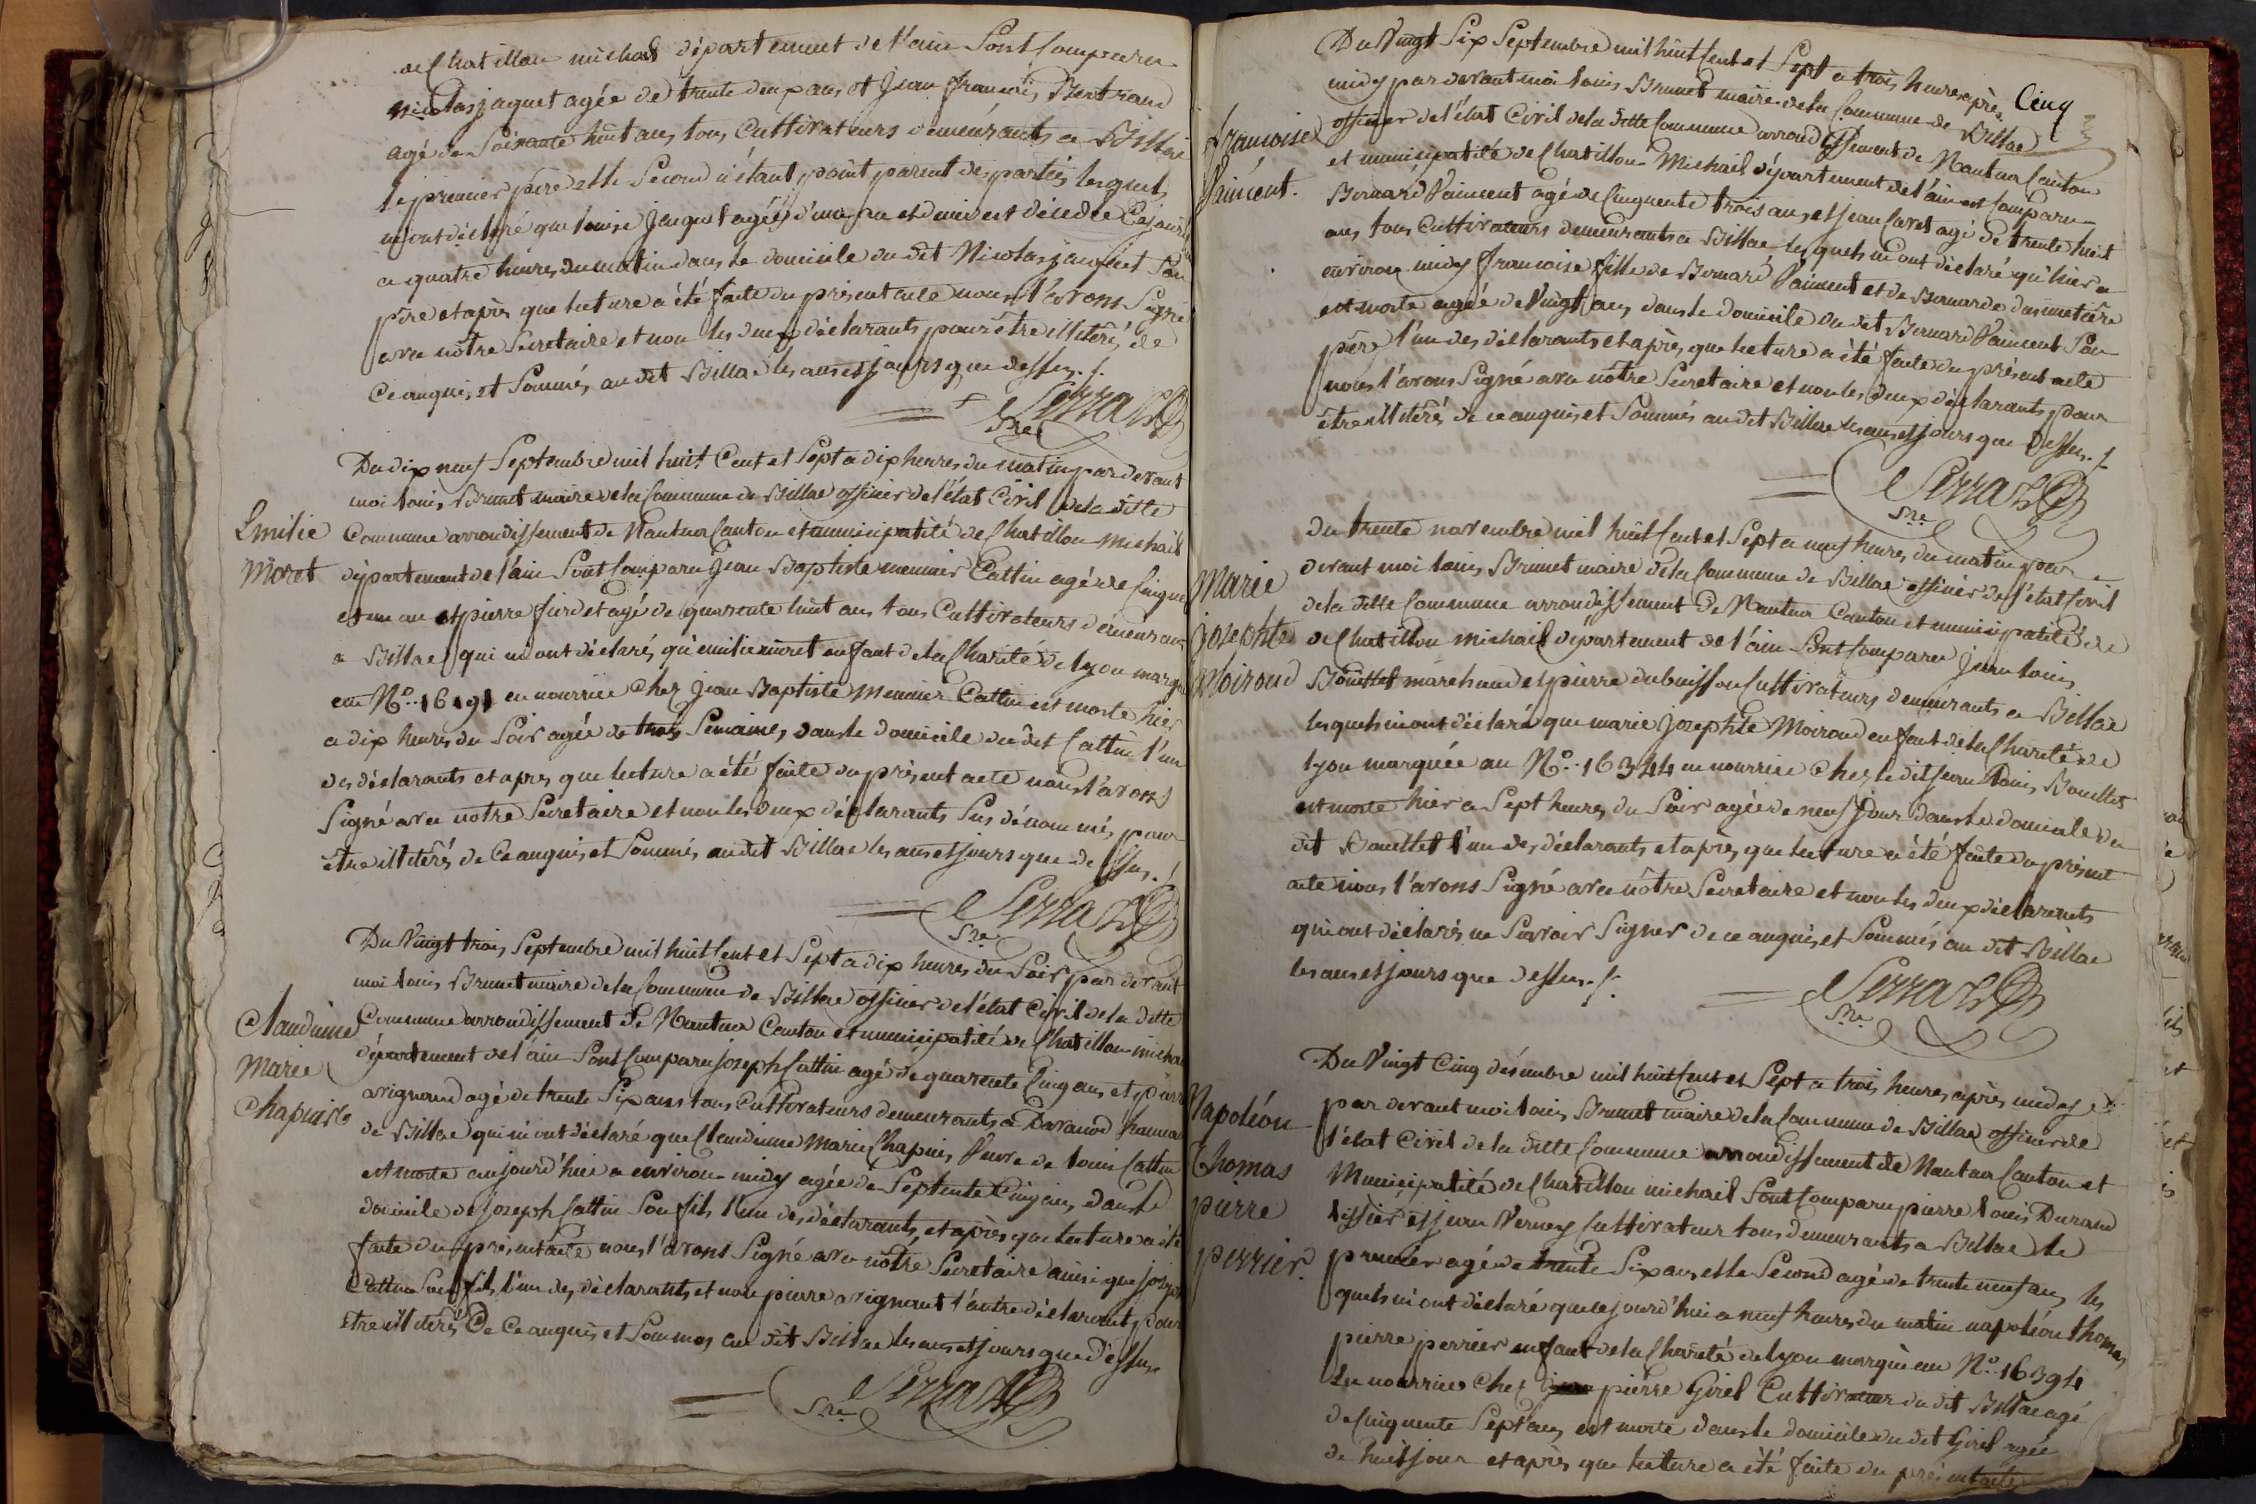 de Chatillon michail département de l'ain Sont Comparu
nicolas jaquet agée de trente deux ans et Jean françois Bertrand
agé de Soixante huit ans tous Cultivateurs demeurants a Billiac
le premier père et le Second n'étant point parent des parties lesquels
m'ont déclaré que louise Jaquet agée d'un an et demi est décedée Cejourd
a quatre heures du matin dans le domicile du dit Nicolas jaquet Son
père et après que lecture a été faite du présent acte nous l'avons Signé
avec nôtre Secretaire et non les deux déclarants pour être illitérés de
Ce enquis et Sommés au dit Billiac les ans et jours que dessus ./.
Serra
Sre
Du dix neuf Septembre mil huit Cent et Sept a dix heures du matin par devant
moi louis Brunet maire de la Commune de Billiac officier de l'état Civil de la ditte
Emilie
Moret
Commune arrondissement de Nantua Canton et municipatité de Chatillon Michail
département de l'ain Sont Comparu Jean Baptiste meunier Cattin agé de Cinqu
et un an et pierre fierdet agé de quarante huit ans tous Cultivateurs demeurant
a Billiac qui m'ont déclaré, qu'emilie moret enfant de la Charité de lyon marqu
au N°. 16191 en nourrice Chez Jean Baptiste Meunier Cattin est morte hier
a dix heures du Soir agée de trois Semaines, dans le domicile du dit Cattin l'un
des déclarants et apres que lecture a été faite du présent acte nous l'avons
Signé avec notre Secretaire et non les deux déclarants Sus dénommés pour
être illitérés de Ce enquis et Sommés au dit Billiac les ans et jours que dessus ./.
Serra
Sre
Du Vingt trois Septembre mil huit Cent et Sept a dix heures du Soir par devant
moi louis Brunet maire de la Commune de Billiac officier de l'état Civil de la ditte
Claudinne
Marie
Chapuis
Commune arrondissement de Nantua Canton et municipatité de Chatillon michai
département de l'ain Sont Comparu joseph Cattin agé de quarente Cinq ans, et pierr
avignand agé de trente Six ans tous Cultivateurs demeurants a Davanod hamea
de Billiac qui m'ont déclaré que Claudinne Marie Chapuis Veuve de louis Cattin
est morte aujourd'hui a environ midy agée de Septente Cinq ans, dans le
domicile de joseph Cattin Son fils l'un des déclarants, et après que lecture a été
faite du présent acte nous l'avons Signé avec nôtre Secretaire ainsi que josep
Cattin Son fils l'un des déclarants et non pierre avignant l'autre déclarant, pour
être illiterés De Ce enquis et Sommés au dit Billiac les ans et jours que dessus
Serra
Sre
Cinq
Du Vingt Six Septembre mil huit Cent et Sept a trois heures après
midy par devant moi louis Brunet maire de la Commune de Billiac
françoise
Vaincent.
officier de l'état Civil de la ditte Commune arrondissement de Nantua Canton
et municipatité de Chatillon Michail département de l'ain ont Comparu
Bernard Vaincent agé de Cinquente trois ans, et jean Caret agé de trente huit
ans, tous Cultivateurs demeurants a Billiac lesquels m'ont déclaré qu'hier a
environ midy francoise fille de Bernard Vaincent et de Bernarde
est morte agée de Vingt ans, dans le domicile du dit Bernard Vaincent Son
père l'un des déclarants et après, que lecture a été faite du présent acte
nous l'avons Signé avec nôtre Secretaire et non les deux déclarants pour
être illitérés de ce enquis, et Sommés au dit Billiac les ans et jours que dessus ./.
Serra
Sre
du trente novembre mil huit Cent et Sept a neuf heures, du matin par
devant moi louis Brunet maire de la Commune de Billiac officier de l'état Civil
Marie
josephte
Moiroud
de la ditte Commune arrondissement de Nantua Canton et municipatité de
de Chatillon michail département de l'ain Sont Comparu Jean louis
Bouillet marchand et pierre dubuisson Cultivateurs demeurants a Billiac
lesquels m'ont déclaré que marie josephte Moiroud enfant de la Charité de
lyon marquée au N°. 16344 en nourrice Chez le dit jean louis Bouillet
est morte hier a Sept heures, du Soir agée de neuf jour dans le domicile du
dit Bouillet l'un des, déclarants et après, que lecture a été faite du présent
acte nous, l'avons Signé avec nôtre Secretaire et non les deux déclarants
qui ont déclarés ne Savoir Signer de ce enquis, et Sommés au dit Billiac
les ans et jours que dessus ./.
Serra
Sre
Du Vingt Cinq décembre mil huit Cent et Sept a trois heures après midy
par devant moi louis Brunet maire de la Commune de Billiac officier de
Napoléon
Thomas
pierre
perrier.
l'état Civil de la ditte Commune arrondissement de Nantua Canton et
Municipatité de Chatillon michail Sont Comparu pierre louis Durand
tissier et jean Verney Cultivateur tous demeurants a Billiac le
premier agé de trente Six ans, et le Second agé de trente neuf ans, les
quels m'ont déclaré que cejourd'hui a neuf heures, du matin napoléon thomas
pierre perrier enfant de la Charité de lyon marqué au N°. 16394
En nourrice Chez pierre Girel Cultivateur du dit Billiac agé
de Cinquente Sept ans, est morte dans le domicile du dit Girel agée
de huit jour et après que lecture a été faite du présent acte